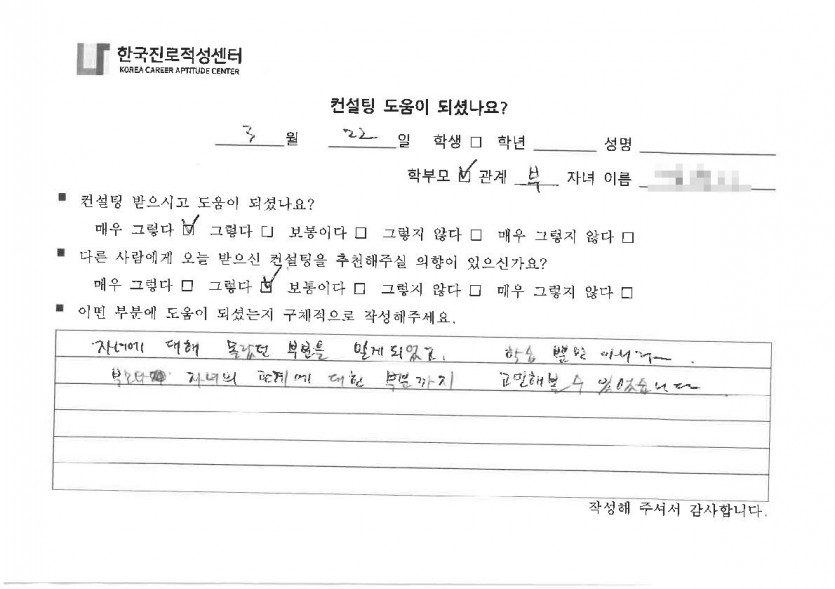 한국진로적성센터
KOREA CAREER APTITUDE CENTER
컨설팅 도움이 되셨나요?
3 월 22 일 학생 □ 학년 성명
학부모 ☑ 관계 부 자녀 이름
■ 컨설팅 받으시고 도움이 되셨나요?
매우 그렇다 ☑ 그렇다 □ 보통이다 □ 그렇지 않다 □ 매우 그렇지 않다 □
■ 다른 사람에게 오늘 받으신 컨설팅을 추천해주실 의향이 있으신가요?
매우 그렇다 □ 그렇다 ☑ 보통이다 □ 그렇지 않다 □ 매우 그렇지 않다 □
■ 어떤 부분에 도움이 되셨는지 구체적으로 작성해주세요.
자녀에 대해 몰랐던 부분들 알게되었고. 학습 뿐만 아니라
자녀의 관계에 대한 부분까지 고민해볼 수 있었습니다
작성해 주셔서 감사합니다.